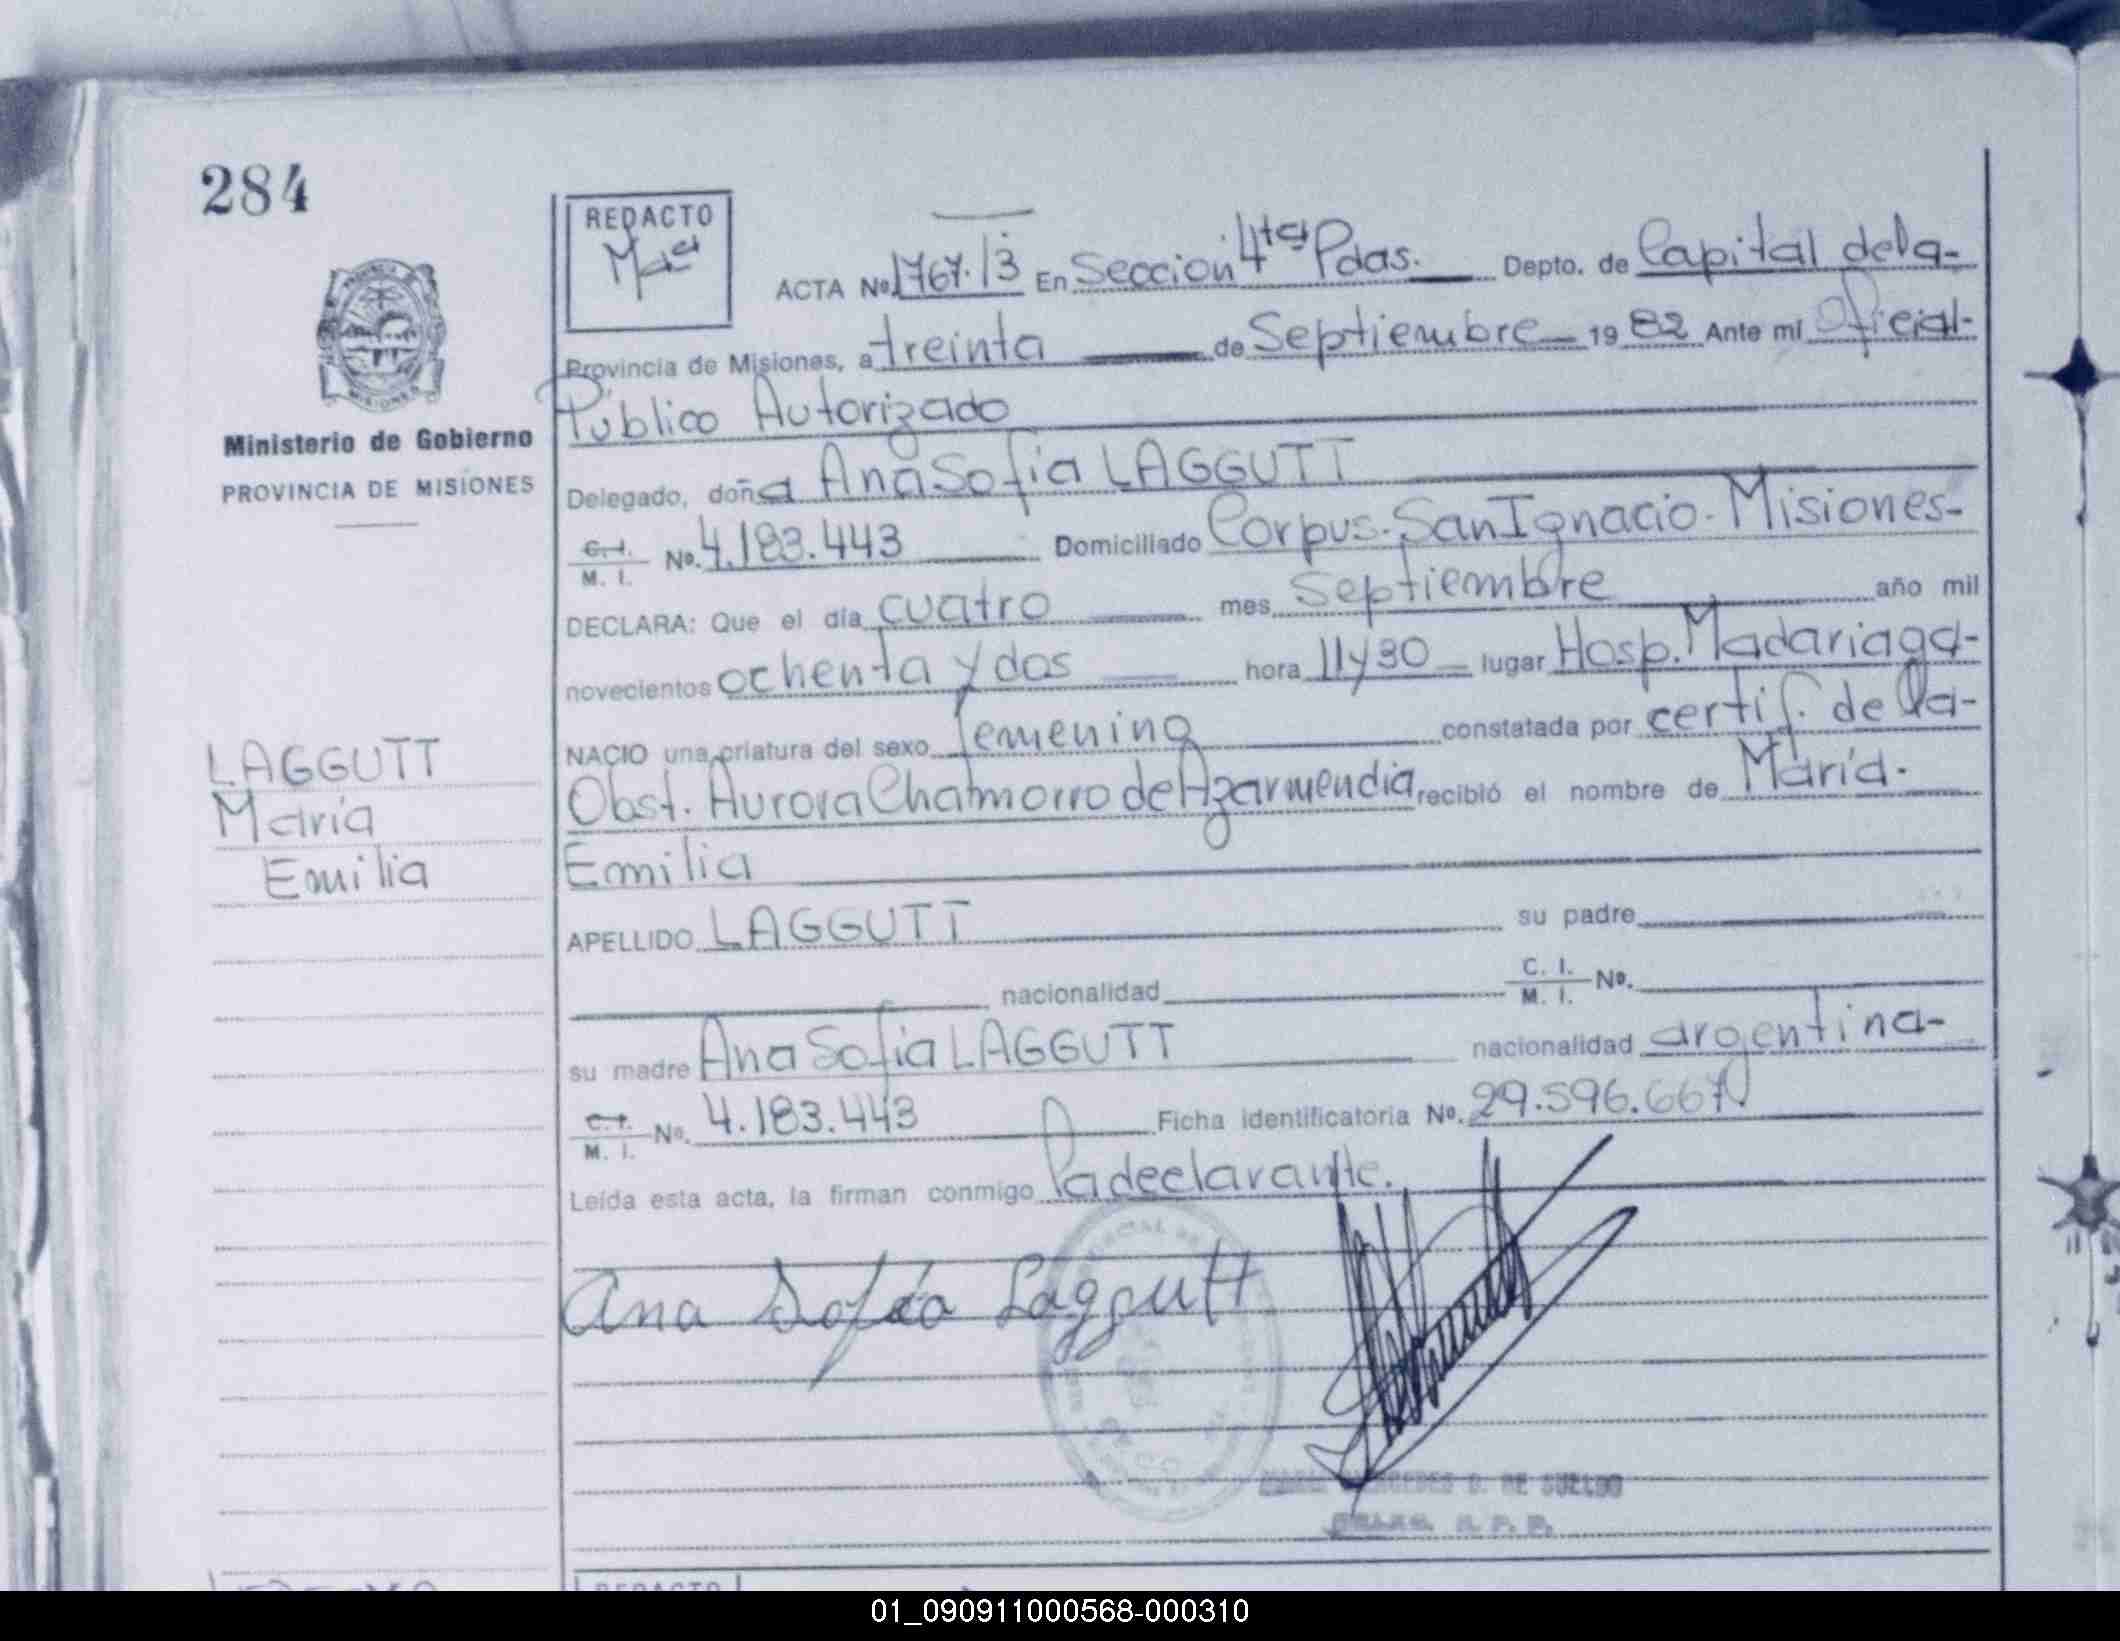 284
REDACTO
ACTA Nº 1767. /3 En Seccion 4ta Pdas. Depto. de Capital dela-
Provincia de Misiones, a treinta de Septiembre 1982 Ante mí Oficial-
Público Autorizado
Ministerio de Gobierno
PROVINCIA DE MISIONES
Delegado, doña Ana Sofia LAGGUTT
C. I. M. I. Nº. 4.183.443 Domiciliado Corpus. San Ignacio. Misiones-
DECLARA: Que el día cuatro mes Septiembre año mil
novecientos ochenta y dos hora 11y30 lugar Hosp. Madariaga-
NACIO una criatura del sexo femenino constatada por certif. de la-
Obst. Aurora Chamorro de Azarmendia recibió el nombre de María.
Emilia
LAGGUTT
María
Emilia
APELLIDO LAGGUTT su padre
nacionalidad C. I. M. I. Nº.
su madre Ana Sofia LAGGUTT nacionalidad argentina-
C. I. M. I. Nº. 4.183.443 Ficha identificatoria Nº. 29.596.667
Leída esta acta, la firman conmigo la declarante.
Ana Sofía Laggutt
MERCEDES D. DE SUELDO
REDACTO
01_090911000568-000310